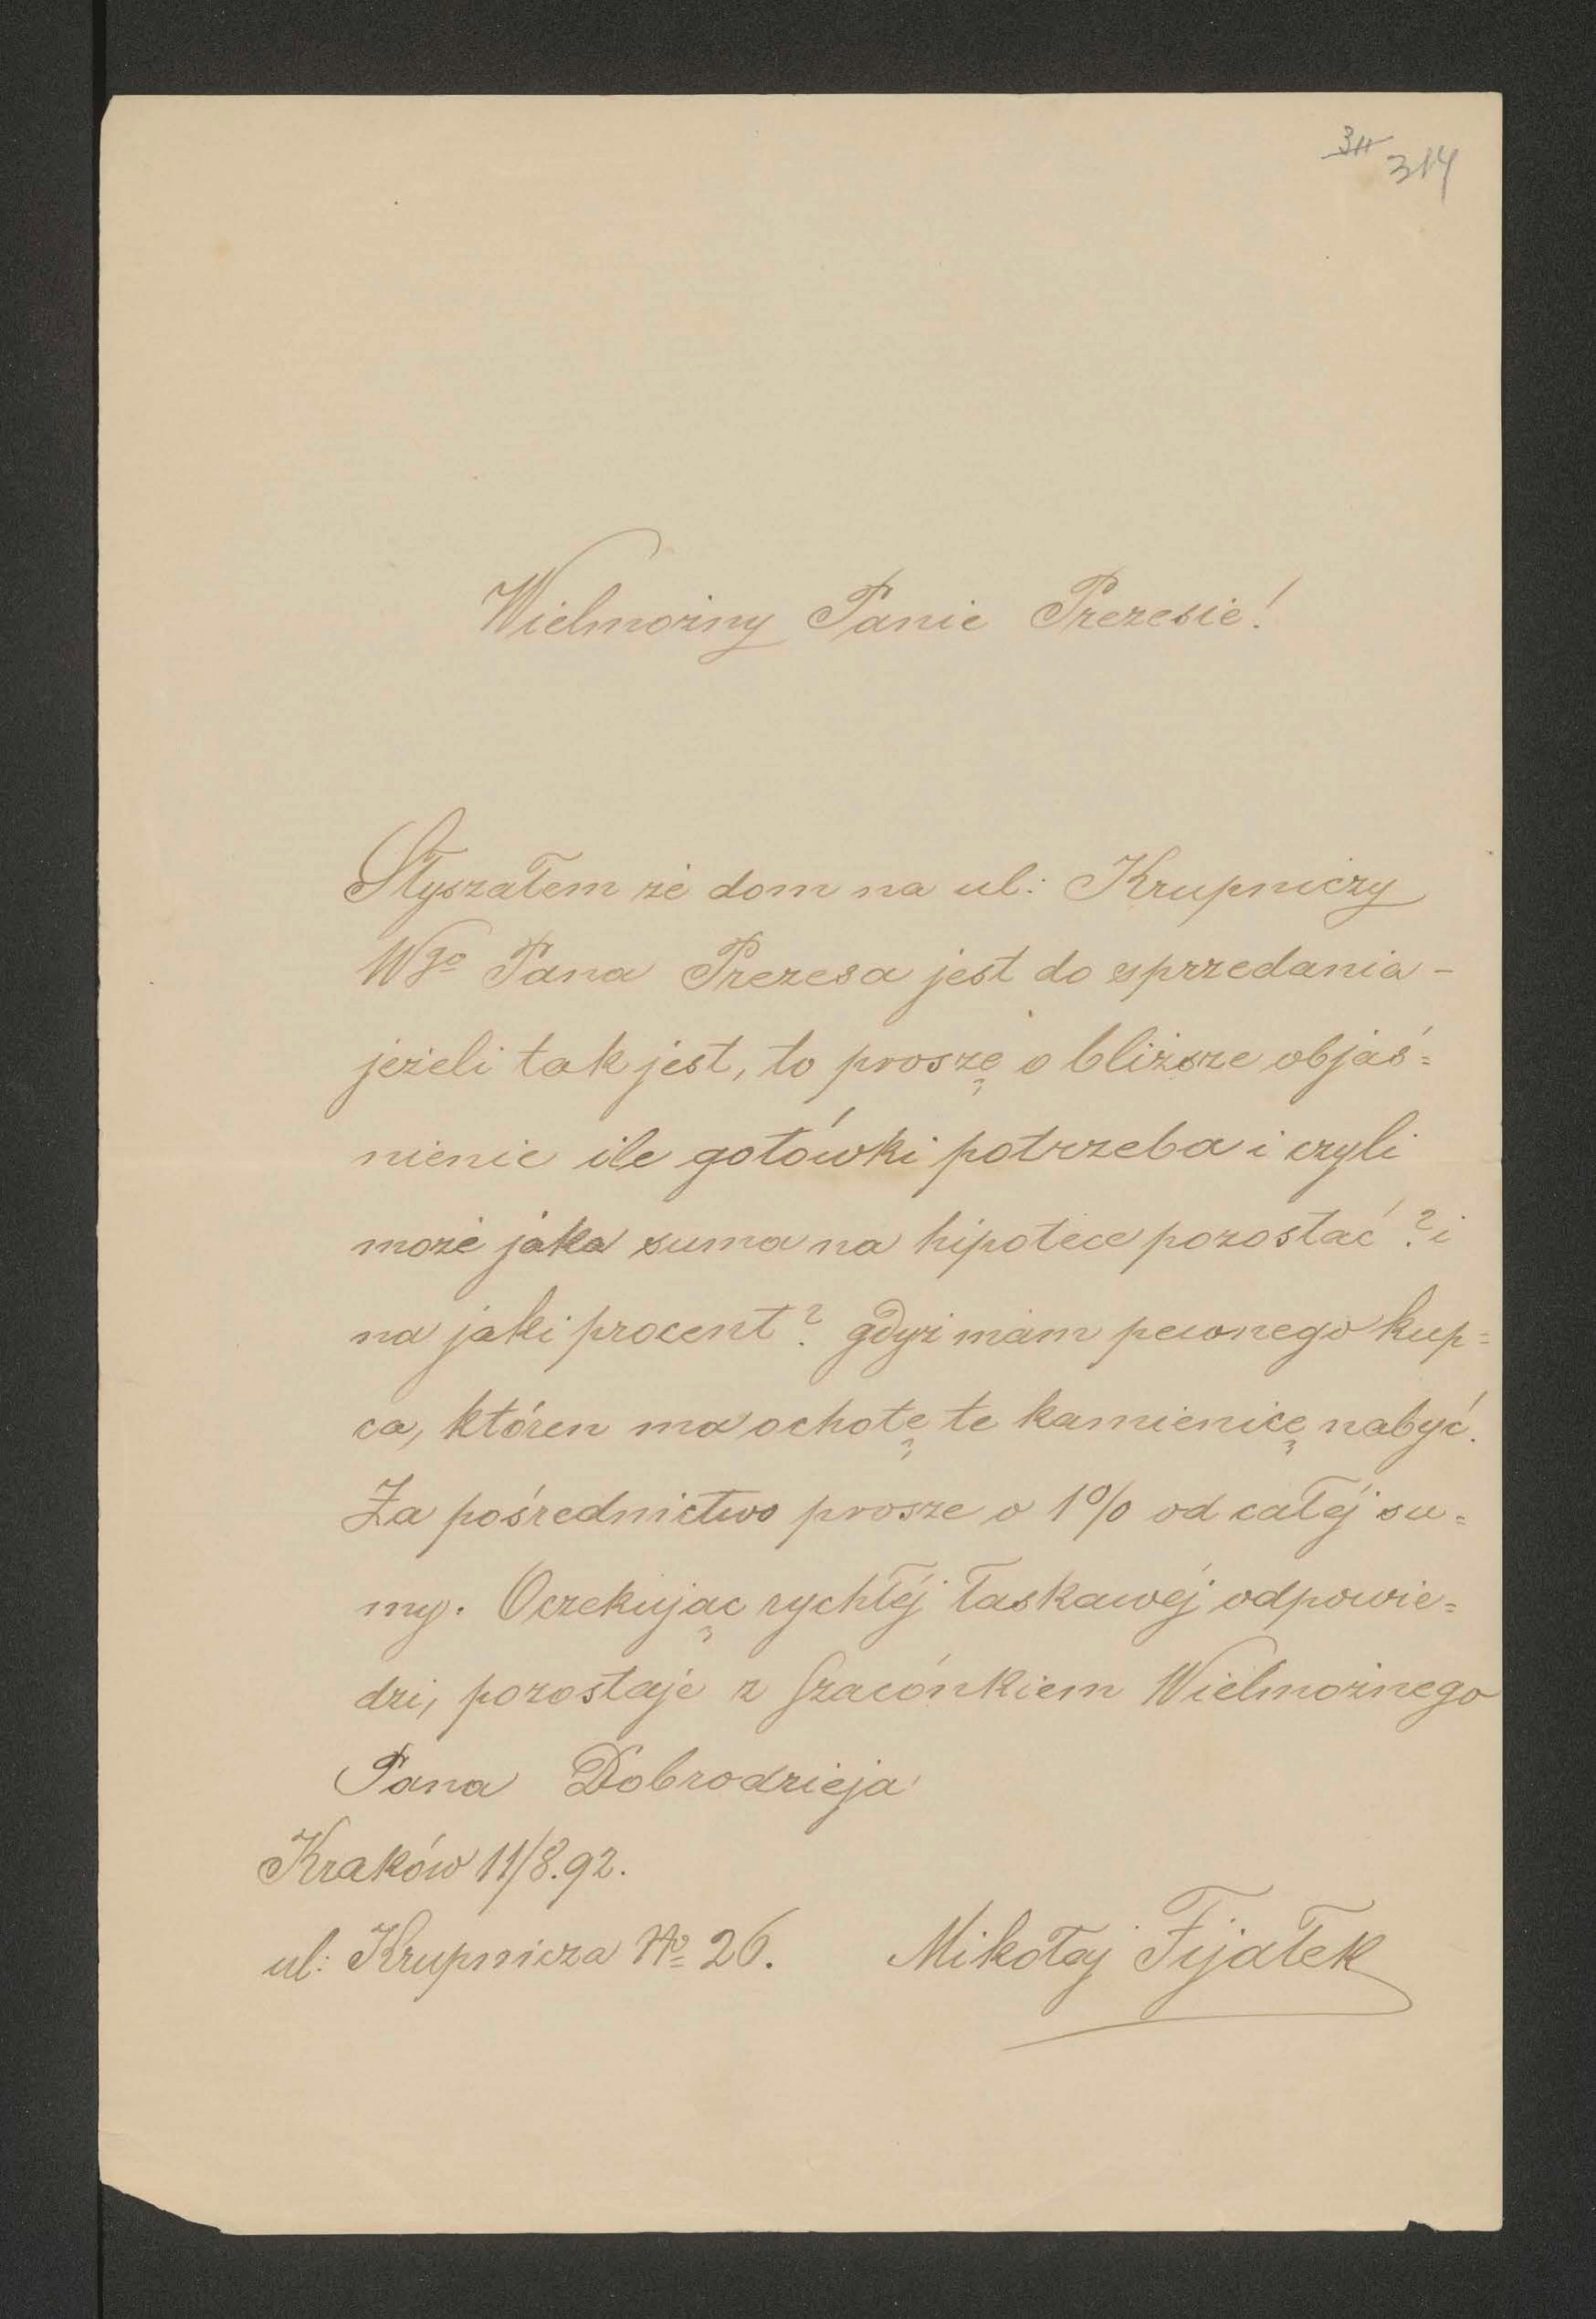 311 314
Wielmożny Panie Prezesie!
Słyszałem że dom na ul: Krupniczy
Wgo Pana Prezesa jest do sprzedania -
jeżeli tak jest, to proszę o bliższe objaś=
nienie ile gotówki potrzeba i czyli
może jaka suma na hipotece pozostać? i
na jaki procent? gdyż mam pewnego kup=
ca, któren ma ochotę te kamienicę nabyć.
Za pośrednictwo prosze o 1% od całéj su=
my. Oczekując rychłéj łaskawéj odpowie=
dzi, pozostaje z szacónkiem Wielmożnego
Pana Dobrodzieja
Kraków 11/8.92.
ul: Krupnicza No 26. Mikołaj Fijałek